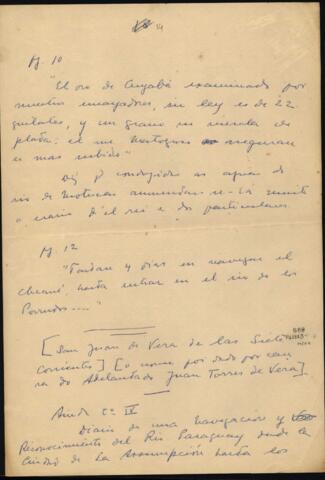 14
pg. 10
"El oro de Cuyabá examinado por
nuestros ensayadores, su ley es de 22
quilates, y un grano en mezcla de
plata: el de aseguran
es mas subido"
Diz q condizidos as aguas do
rio de Motucas a
o ouro d'el rei e dos particulares.
pg. 12
"Tardan 4 dias en navegar el
Cheané, hasta entrar en el rio de los
Porrudos...."
[San Juan de Vera de las Siete
Corrientes] [o nome foi dado por cau
sa do Adelantado Juan Torres de Vera]
Anda tº IV
Diario de una Navegacion y
Reconocimiento del Rio Paraguay desde la
Ciudad de la Assumpción hasta los